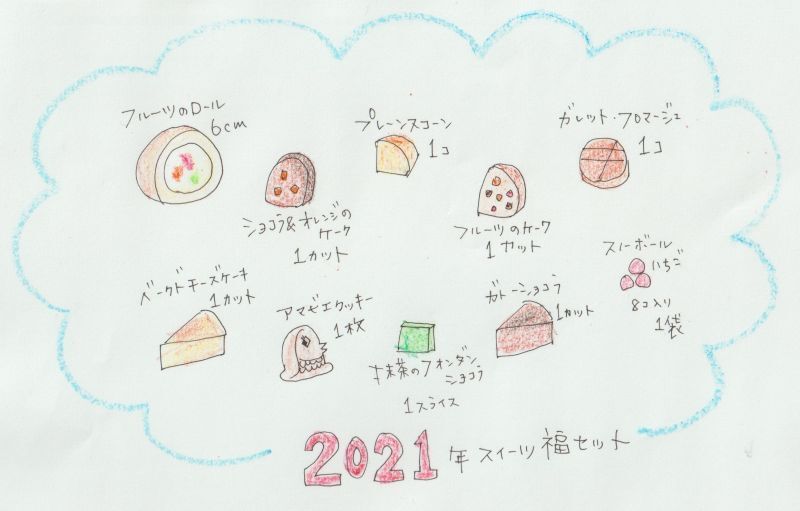 フルーツのロール
6cm
プレーンスコーン
1コ
ガレット・フロマージュ
1コ
ショコラ&オレンジの
ケーク
1カット
フルーツのケーク
1カット
スノーボール
いちご
8コ入り
1袋
ベークドチーズケーキ
1カット
アマビエクッキー
1枚
抹茶のフォンダン
ショコラ
1スライス
ガトーショコラ
1カット
2021年スイーツ福セット